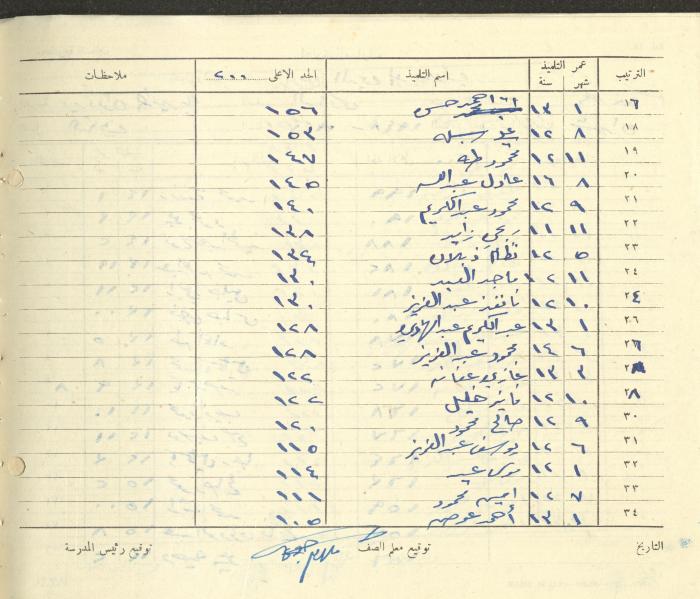 الترتيب عمر التلميذ شهر سنة اسم التلميذ الحد الاعلى ٢٠٠ ملاحظات
١٦ ١ ١٣ حسن ١٥٦
١٨ ٨ ١٢ ١٥٣
١٩ ١١ ١٢ محمود طه ١٤٧
٢٠ ٨ ١٦ عادل عبدالله ١٤٥
٢١ ٩ ١٢ محمود عبدالكريم ١٤٠
٢٢ ١١ ١١ زايد ١٣٨
٢٣ ٥ ١٢ نظام ١٣٤
٢٤ ١١ ١٢ ماجد العبد ١٣٠
٢٤ ١٠ ١٢ نافذ عبد العزيز ١٣٠
٢٦ ١ ١٣ عبد الكريم عبد الهادي ١٢٨
٢٦ ٦ ١٤ محمود عبد العزيز ١٢٨
٢٨ ٣ ١٣ غازي ١٢٢
٢٨ ١٠ ١٢ فايز خليل ١٢٢
٣٠ ٩ ١٢ صالح محمود ١٢٠
٣١ ٦ ١٢ يوسف عبد العزيز ١١٥
٣٢ ١ ١٢ موسى عيد ١١٤
٣٣ ٧ ١٢ امين محمود ١١١
٣٤ ١ ١٣ أحمد عوض ١٠٥
التاريخ توقيع معلم الصف توقيع رئيس المدرسة